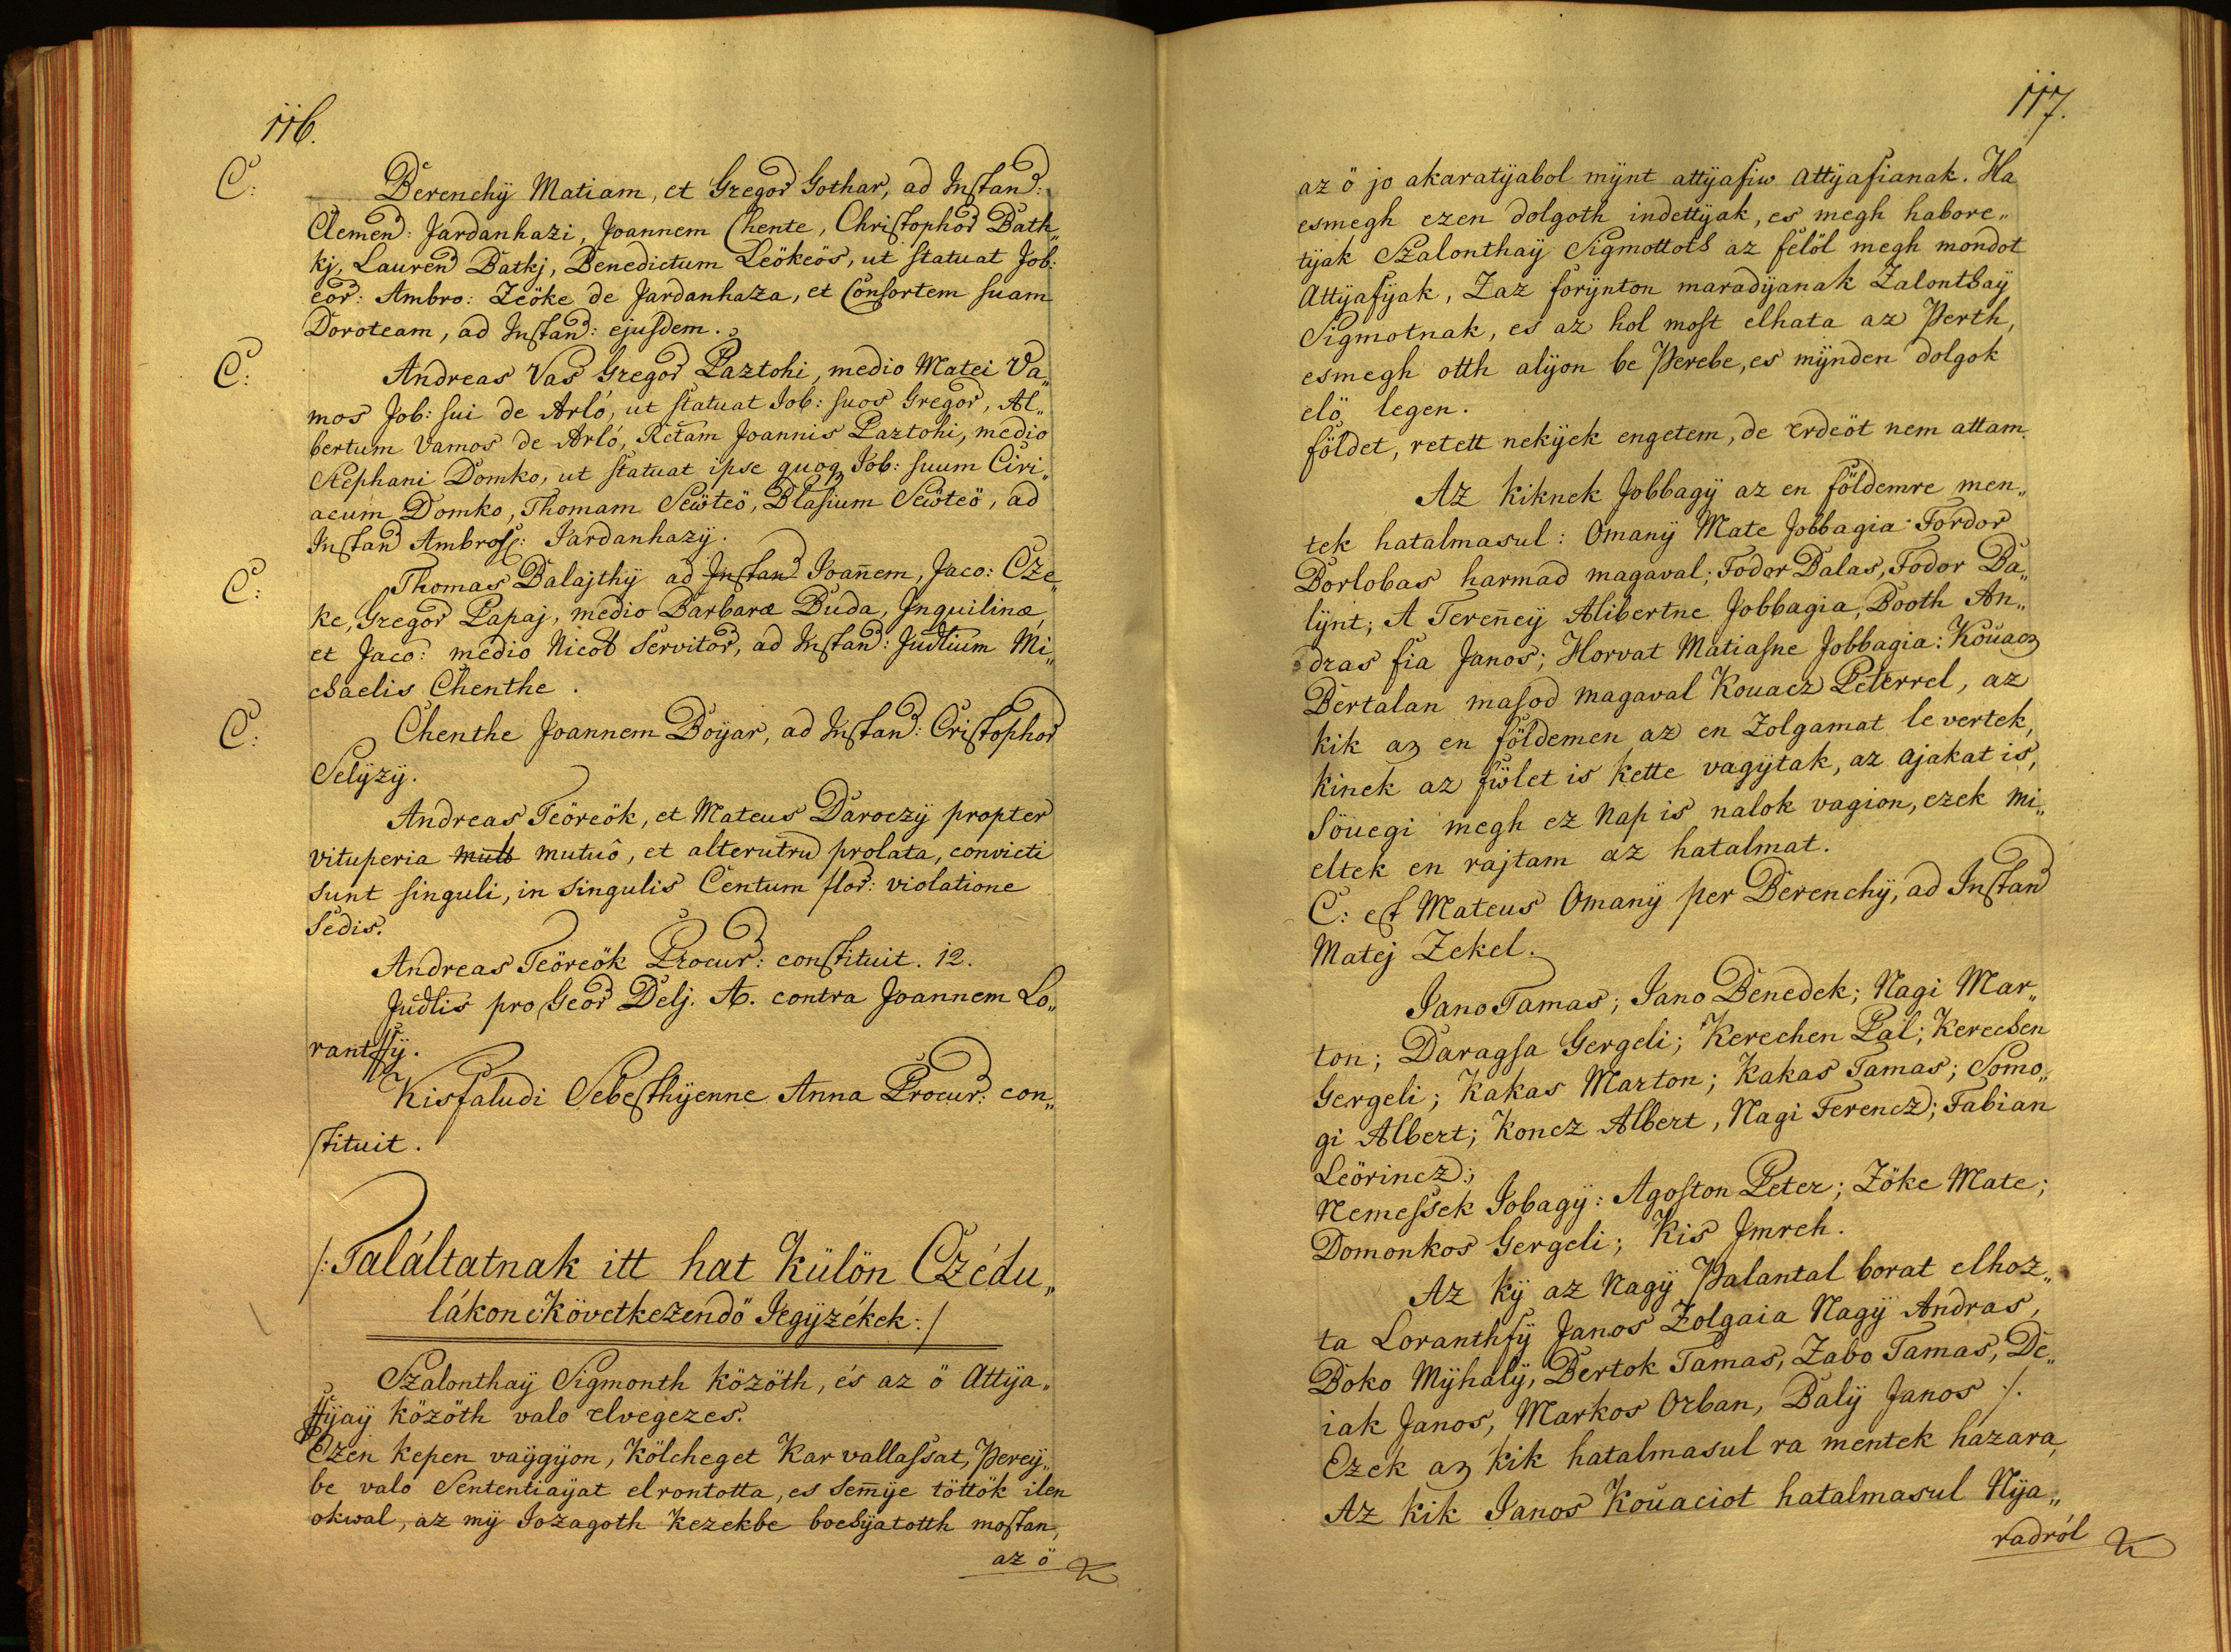 116.
C: Berenchÿ Matiam, et Gregor Gothar, ad Instan:
Clemen: Jardanhazi, Joannem Chente, Christophor Bath„
kj, Lauren Batkj, Benedictum Leökeös, ut statuat Job:
eor: Ambro: Zeöke de Jardanhaza, et Consortem suam
Doroteam, ad Instan: ejusdem.
C: Andreas Vas Gregor Paztohi, medio Matei Va„
mos Job: sui de Arló, ut statuat Job: suos Gregor, Al„
bertum Vamos de Arló, Retam Joannis Paztohi, medio
Stephani Domko, ut statuat ipse quoq Job: suum Ciri„
acum Domko, Thomam Seöteö, Blasium Seöteö, ad
Instan Ambros: Jardanhazÿ.
C: Thomas Balajthÿ ad Instan Joañem, Jaco: Cze„
ke, Gregor Papaj, medio Barbaræ Buda, Inquilinæ,
et Jaco: medio Nicol Servitor, ad Instan: Judlium Mi„
chaelis Chenthe.
C: Chenthe Joannem Boÿar, ad Instan: Cristophor
Selÿzÿ.
Andreas Teöreök, et Mateus Daroczÿ propter
vituperia mutt mutuô, et alterutru prolata, convicti
sunt singuli, in singulis Centum flor: violatione
Sedis.
Andreas Teöreök Procur: constituit. 12.
Judlis pro Geor Delj. A. contra Joannem Lo„
rantffÿ.
Kisfaludi Sebesthÿenne Anna Procur: con„
stituit.
/: Találtatnak itt hat Külön Czédu„
lákon e' Következendö Jegÿzékek :/
Szalonthaÿ Sigmonth közöth, és az ö Attÿa„
ffÿaÿ közöth valo elvegezes.
Ezen kepen vaÿgÿon, Kölcheget Kar vallassat, Pereÿ„
be valo Sententiaÿat elrontotta, es sem̃ÿe töttök ilen
okwal, az mÿ Jozagoth kezekbe bochÿatotth mostan,
az ö
117.
az ö jo akaratÿabol mÿnt attÿafiw attÿafianak. Ha
esmegh ezen dolgoth indettÿak, es megh habore„
tÿak Szalonthaÿ Sigmottoth az felöl megh mondot
Attÿafÿak, Zaz forÿnton maradÿanak Zalonthaÿ
Sigmotnak, es az hol most elhata az Perth,
esmegh otth alÿon be Perebe, es mÿnden dolgok
elö legen.
földet, retett nekÿek engetem, de erdeöt nem attam.
Az kiknek Jobbagÿ az en földemre men„
tek hatalmasul: Omanÿ Mate Jobbagia Fordor
Borlobas harmad magaval; Fodor Balas, Fodor Ba„
lÿnt; A Tereñeÿ Alibertne Jobbagia, Booth An„
dras fia Janos; Horvat Matiasne Jobbagia: Kouacz
Bertalan masod magaval Kouacz Peterrel, az
kik az en földemen az en Zolgamat le vertek,
kinek az fwlet is kette vagÿtak, az ajakat is,
Söuegi megh ez nap is nalok vagion, ezek mi„
eltek en rajtam az hatalmat.
C: est Mateus Omanÿ per Berenchÿ, ad Instan
Matej Zekel.
Jano Tamas; Jano Benedek; Nagi Mar„
ton; Daragsa Gergeli; Kerechen Pal; Kerechen
Gergeli; Kakas Marton; Kakas Tamas; Somo„
gi Albert; Koncz Albert, Nagi Ferencz; Fabian
Leörincz;
Nemessek Jobagÿ: Agoston Peter; Zöke Mate;
Domonkos Gergeli; Kis Jmreh.
Az kÿ az Nagÿ Palantal borat elhoz„
ta Loranthfÿ Janos Zolgaia Nagÿ Andras,
Boko Mÿhalÿ, Bertok Tamas, Zabo Tamas, De„
iak Janos, Markos Orban, Balÿ Janos /.
Ezek az kik hatalmasul ra mentek hazara,
Az kik Janos Kouaciot hatalmasul Nÿa„
radról